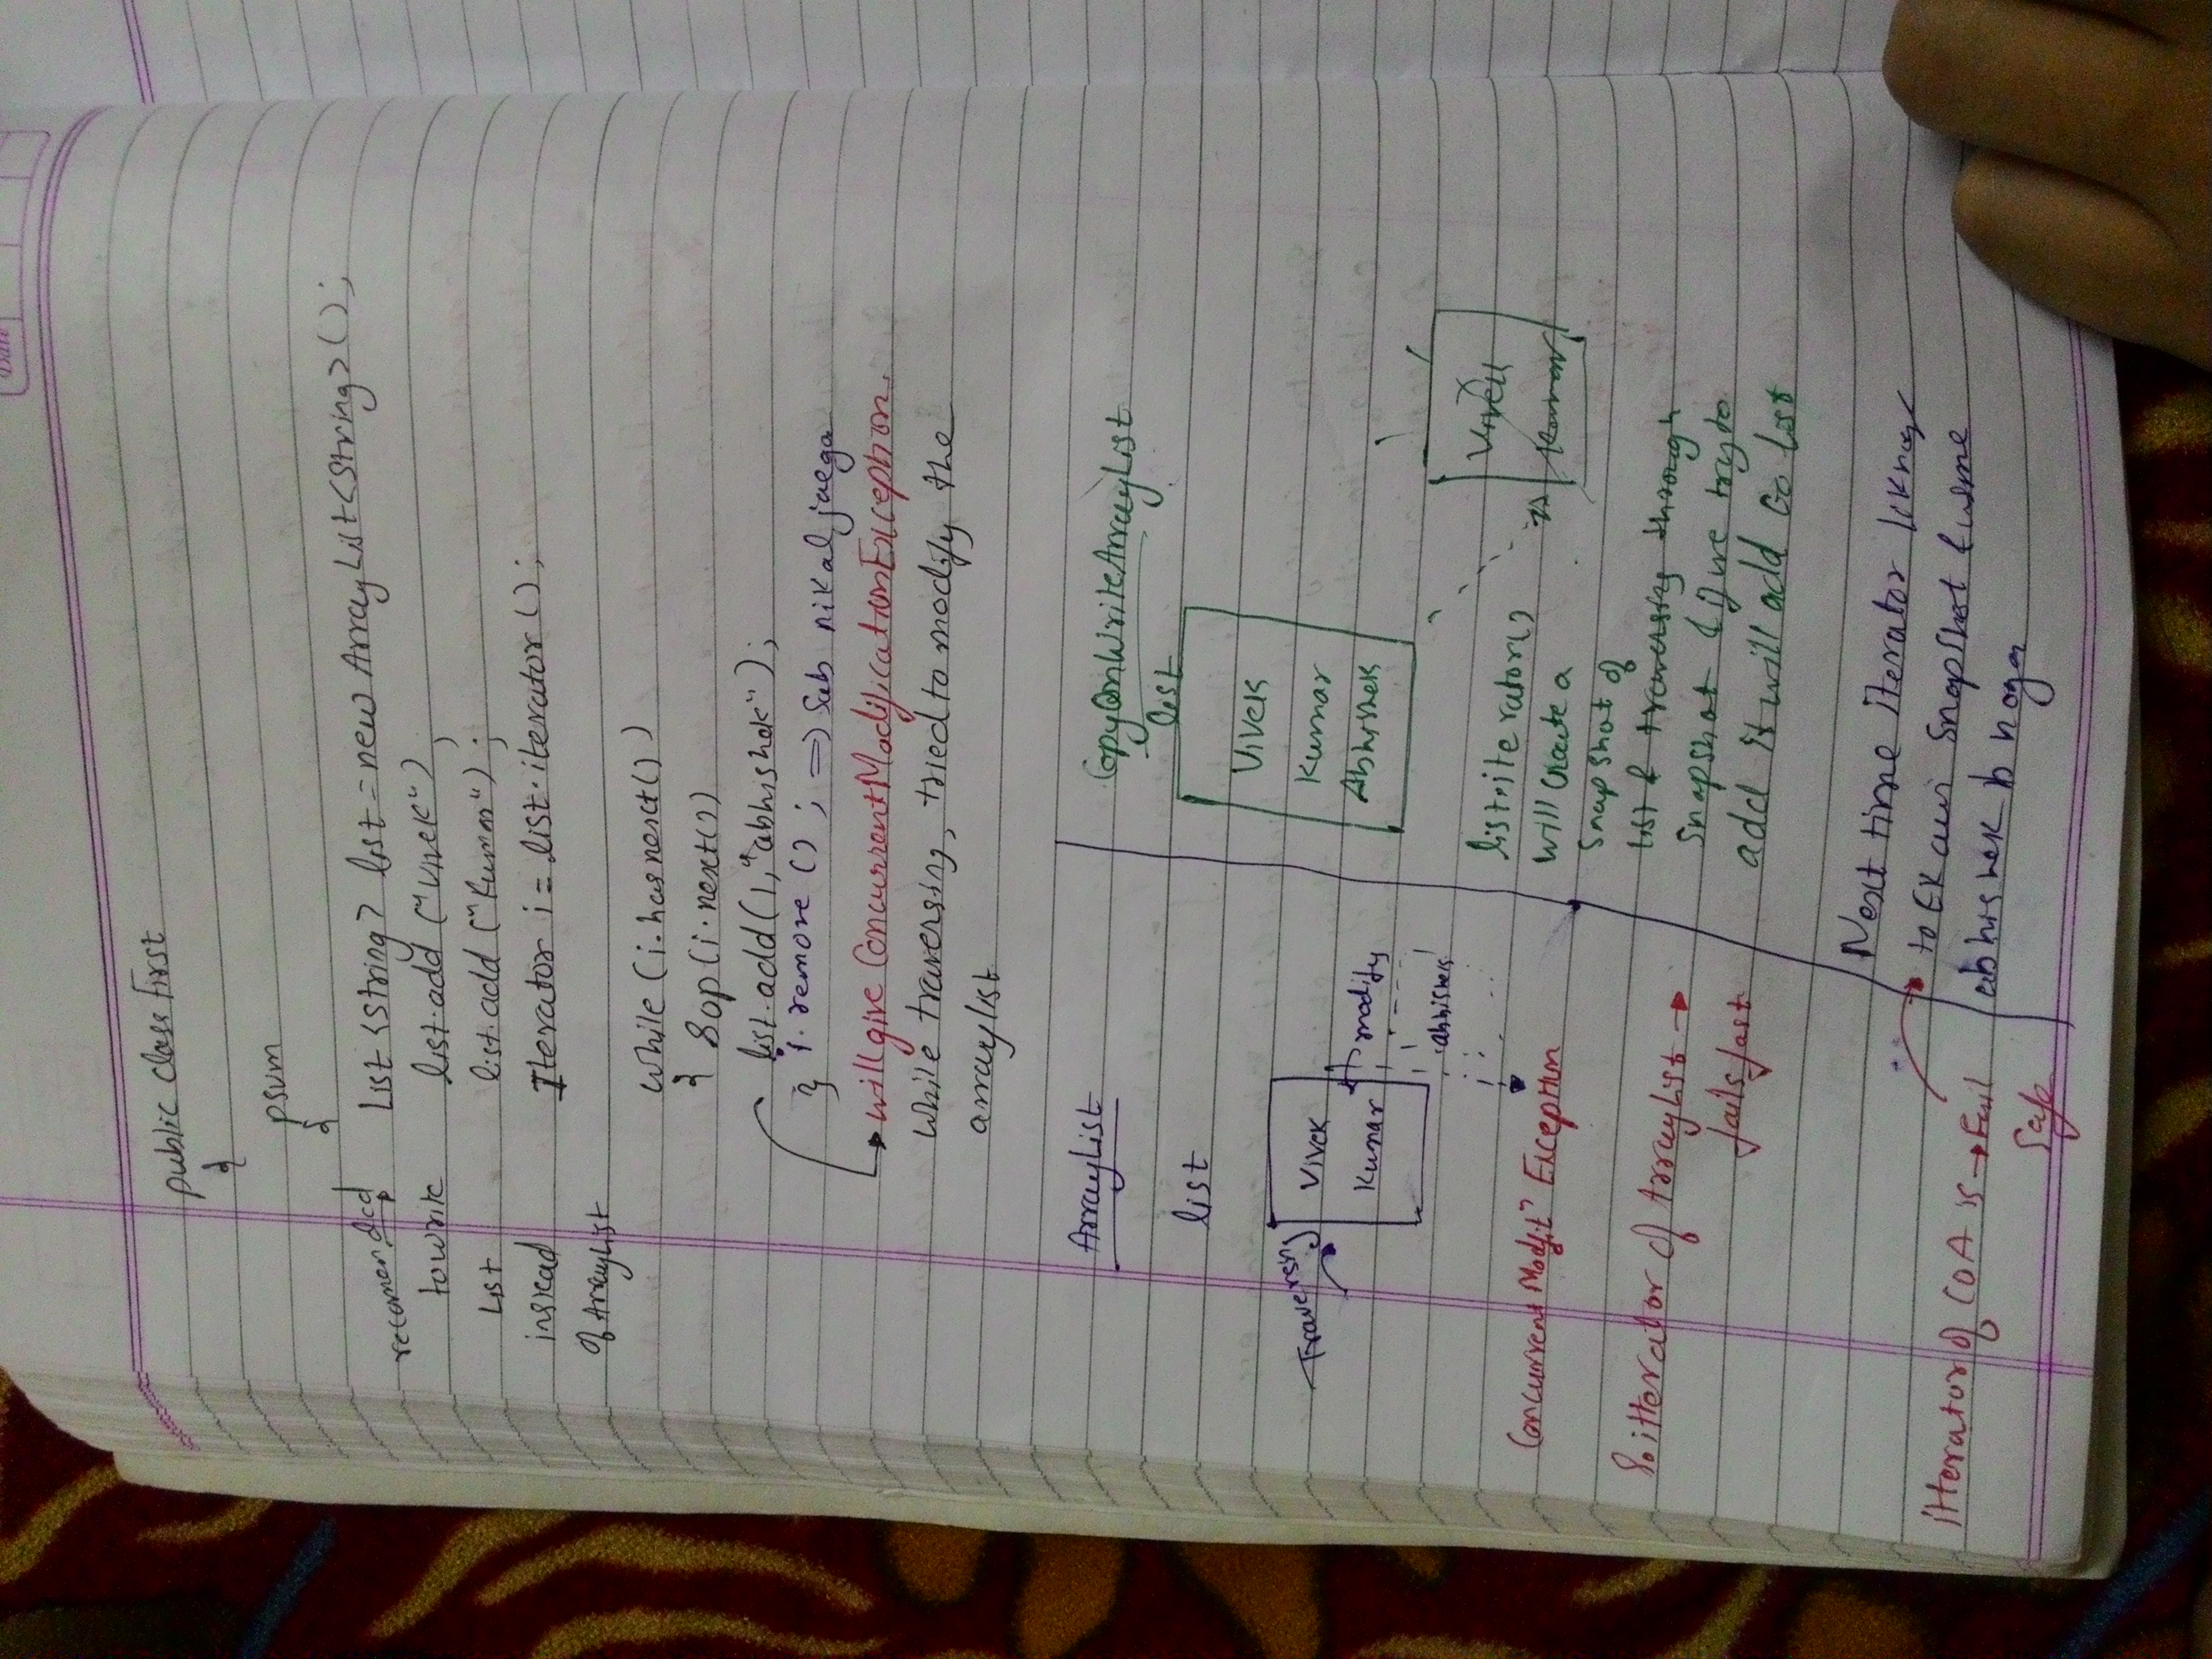 Date
public class First
{
psvm
{
recomended
to write
List
instead
of ArrayList
List <String> list = new ArrayList<String>();
list.add ("Vivek");
list.add ("Kumar");
Iterator i = list.iterator();
while (i.hasnext())
{ Sop(i.next())
list.add(1,"abhishek");
} i.remove(); => Sab nikal jaega
will give ConcurrentModificationException.
while traversing, tried to modify the
arraylist
ArrayList
list
Traversing
Vivek
Kumar
modify
abhishek
Concurrent Modfitn Exception
So itterator of ArrayList →
fails fast
itterator of COA is → Fail
Safe
CopyOnWriteArrayList
list
Vivek
Kumar
Abhishek
Vivek
Kumar
list.iterator()
will create a
snapshot of
list & traversing through
snapshot & if we try to
add it will add to list
Next time iterator
to Ek aur Snapshot & usme
abhishek b hoga